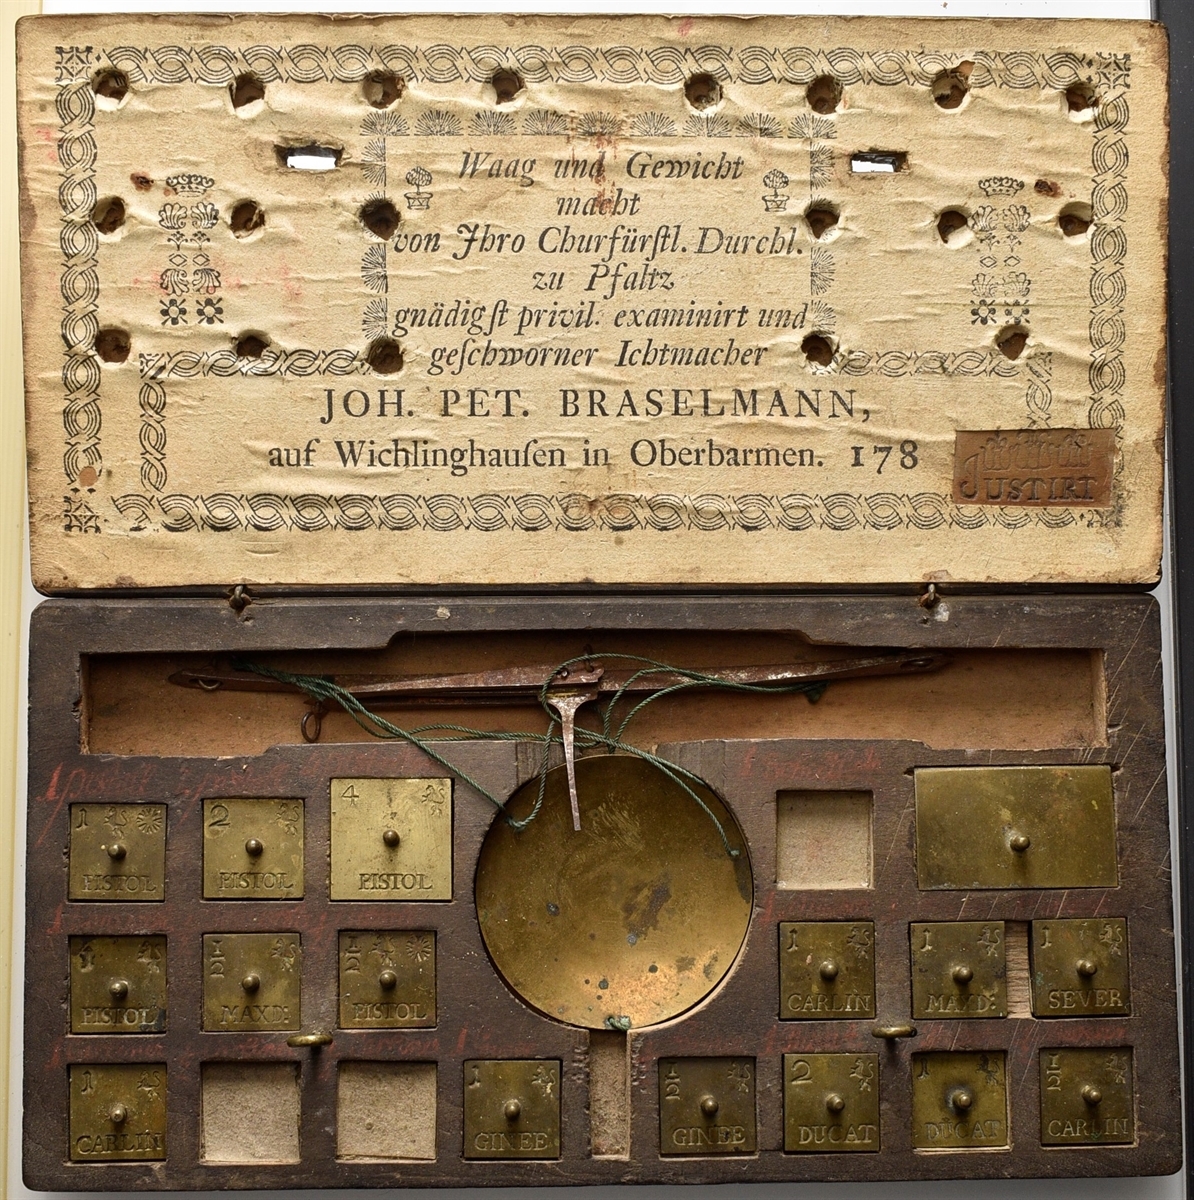 Waag und Gewicht
macht
von Jhro Churfürſtl. Durchl.
zu Pfaltz
gnädigſt privil. examinirt und
geſchworner Ichtmacher
JOH. PET. BRASELMANN,
auf Wichlinghauſen in Oberbarmen. 178
JUSTIRT
1 PISTOL
2 PISTOL
4 PISTOL
PISTOL
1/2 MAXD:
1/2 PISTOL
1 CARLIN
1 MAXD:
1 SEVER
1 CARLIN
1 GINEE
1/2 GINEE
2 DUCAT
1 DUCAT
1/2 CARLIN